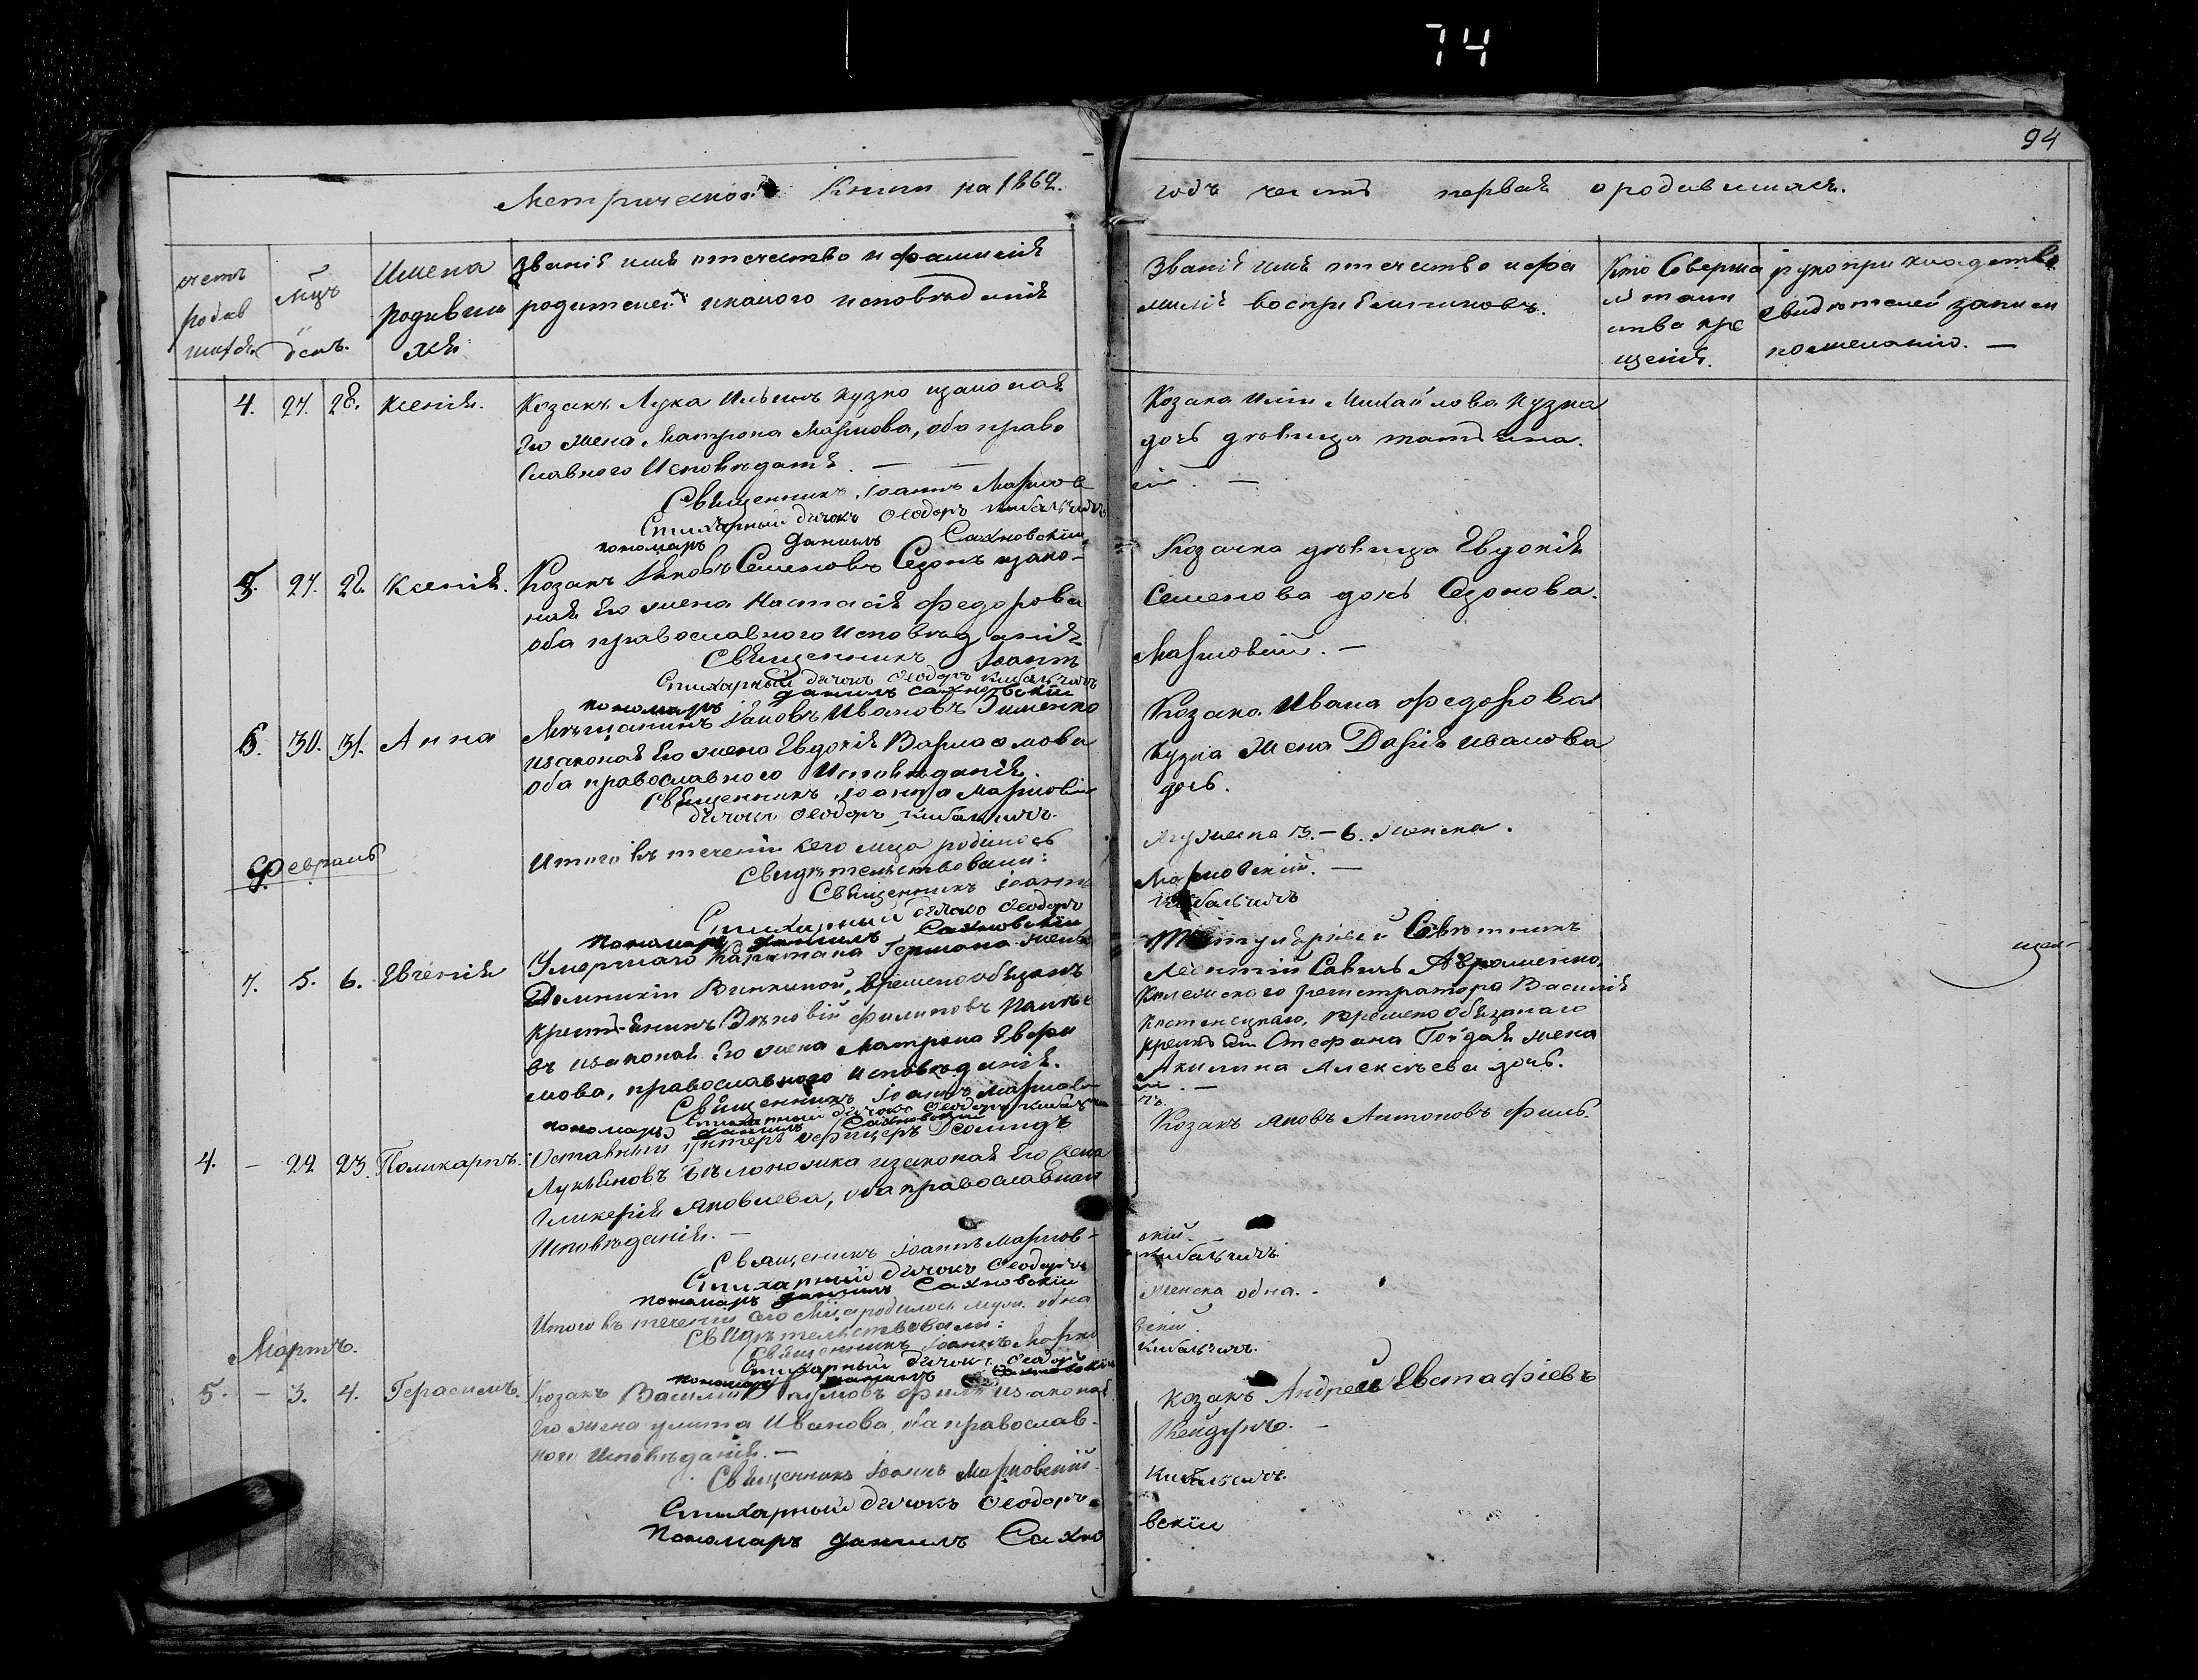 74
94
Метрической Книги на 1862.
годъ часть первая о родившихся.
счетъ
родив
шихся
Мцъ
день.
Имена
родивши
хся
Званіе имя отечество и фамилія
родителей и какого исповѣданія
Званіе имя отечество и фа
милія воспріемниковъ.
Кто Соверша
лъ таин
ство кре
щенія.
рукоприкладство
свидѣтелей записи
по желанію. —
4. 27. 28. Ксенія.
Козакъ Лука Ильинъ Кузко изаконая
Его жена Матрона Маркова, оба право
славного Исповѣданія. — —
Священникъ Іоаннъ Марков
Стихарный дичокъ Ѳеодоръ Кибальчичъ
пономарь Даниилъ Сахновскіи
Козака Иліи Михайлова Кузка
дочь дѣвица татіана.
ій. —
5. 27. 28. Ксенія.
Козакъ Яковъ Семеновъ Сезонъ изако-
ная Его жена Настасія Федорова
оба православного Исповѣданія
Священникъ Іоаннъ
Стихарный дичокъ Ѳеодоръ Кибальчичъ
пономарь Даниилъ Сахновскіи
Козачка дѣвица Евдокія
Семенова дочь Сезонова.
Марковскій. —
6. 30. 31. Анна
Мѣщанинъ Яковъ Ивановъ Зименко
изаконая Его жена Евдокія Варлаамова
оба православного Исповѣданія.
Священникъ Іоаннъ Марковскій
дичокъ Ѳеодоръ Кибальчичъ.
Козака Ивана Федорова
Кузка жена Дарія Иванова
дочь.
Итого въ теченіи сего мца родилось
Мужеска 3. — 6. женска.
Свидѣтельствовали:
Священникъ Іоаннъ
Марковскій. —
Стихарный дичокъ Ѳеодоръ
Кибальчичъ
Пономарь Даниилъ Сахновскіи
Февраль
7. 5. 6. Евгенія
Умершаго Капитана Германа жены
Домникіи Винкиной, временообязанъ
крестьянинъ Зѣновій Филиповъ
въ изаконая Его жена Матрона Ефри
мова, православного исповѣданія.
Священникъ Іоаннъ Марков
Стихарный дичокъ Ѳеодоръ Кибальчи
пономарь Даниилъ Сахновскій
Титулярный Совѣтникъ
Леонтій Савичъ Авраменко,
Колежскаго регистратора Василія
Костенецкаго, временообязанаго
крестьян Стефана Гойдая жена
Акилина Алексѣева дочь.
ій. —
чъ.
4. — 22. 23. Поликарпъ.
Отставный унтеръ офицеръ Деомидъ
Лукьяновъ Бѣлоножка изаконая Его жена
Гликерія Яковлева, оба православнаго
Исповѣданія. —
Священикъ Іоаннъ Марков-
Стихарный дичокъ Ѳеодоръ
пономарь Даниилъ Сахновскіи
Козакъ Яковъ Антоновъ Филь.
скій.
Кибальчичъ
Итого въ теченіи сего мца родилось муж. одна
женска одна. -
Свидѣтельствовали:
Священникъ Іоаннъ Марко
вскій.
Стихарный дичокъ Ѳеодоръ
Кибальчичъ.
пономарь Даниилъ Сахновскіи
Мартъ.
5. — 3. 4. Герасимъ.
Козакъ Василій Наумовъ Филь изаконая
Его жена улита Иванова, оба православ-
ного Исповѣданія. —
Священникъ Іоаннъ Марковскій
Стихарный дичокъ Ѳеодоръ
Пономарь Даниилъ Сахно
Козакъ Андрей Евстафіевъ
Кибальчичъ.
вскіи